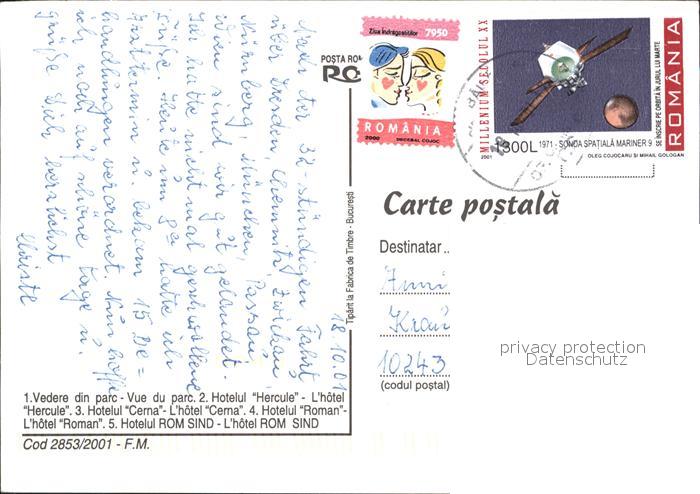 18.10.01
Nach der 32-stündigen Fahrt
über Dresden, Chemnitz, Zwickau,
Nürnberg, München, Passau,
Wien sind wir gut gelandet.
Ich hatte nicht mal geschwollene
Füße. Heute um 9°° hatte ich
Arzttermin u. bekam 15 Be=
handlungen verordnet. Nun hoffe
ich noch auf schöne Tage u.
grüße Dich herzlichst
1.Vedere din parc - Vue du parc. 2. Hotelul "Hercule" - L'hôtel
"Hercule". 3. Hotelul "Cerna"- L'hôtel "Cerna". 4. Hotelul "Roman"-
L'hôtel "Roman". 5. Hotelul ROM SIND - L'hôtel ROM SIND
Cod 2853/2001 - F.M.
Tipărit la Fabrica de Timbre - București
POȘTA RO
Ziua Îndrăgostiților 7950
ROMÂNIA
2000 DECEBAL COJOC
MILLENIUM SECOLUL XX
2001
1300L 1971 - SONDA SPAȚIALĂ MARINER 9
SE ÎNSCRIE PE ORBITĂ ÎN JURUL LUI MARTE
ROMÂNIA
OLEG COJOCARU ȘI MIHAIL GOLOGAN
Carte poștală
Destinatar ..
10243
(codul poștal)
privacy protection
Datenschutz